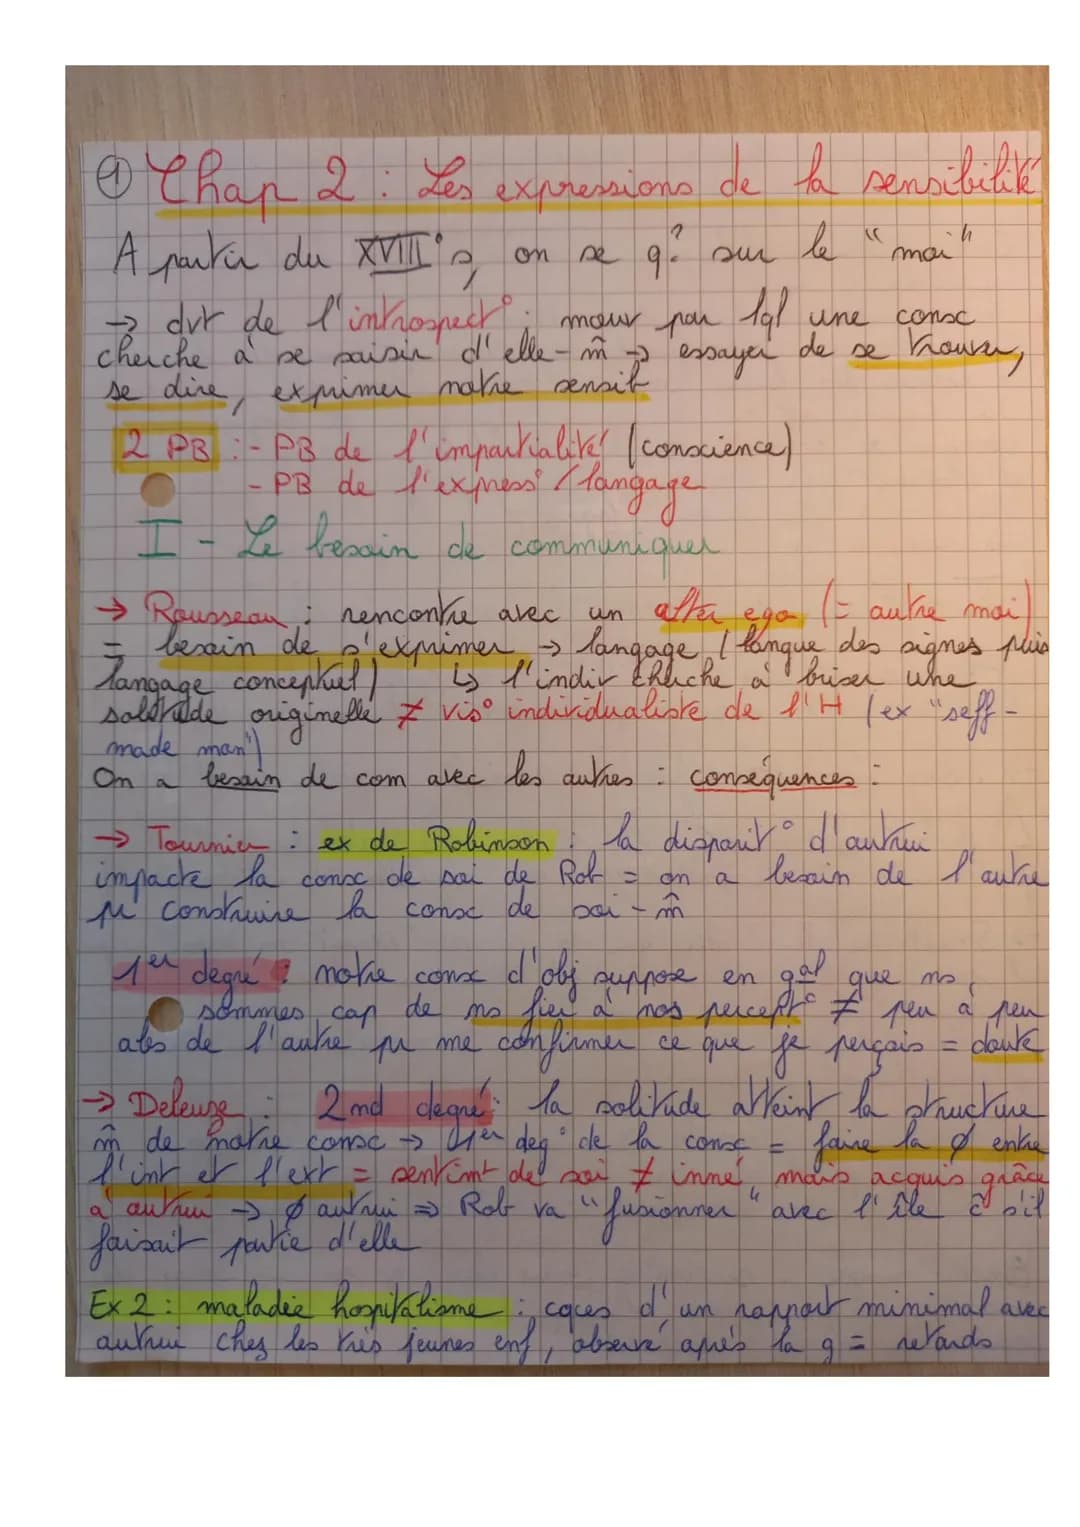 ① Chap 2 : Les expressions de la sensibilité
A partir du XVIII° s, on se q? sur le "moi"
→ dvt de l'introspect° : mouv par lql une consc
cherche à se saisir d'elle-m̂ → essayer de se trouver,
se dire, exprimer notre sensib
2 PB : - PB de l'impartialité (conscience)
- PB de l'express° / langage
I - Le besoin de communiquer
→ Rousseau : rencontre avec un alter ego (= autre moi)
= besoin de s'exprimer → langage (langue des signes puis
langage conceptuel) ↳ l'indiv cherche à briser une
solitude originelle ≠ vis° individualiste de l'H (ex "self-
made man")
On a besoin de com avec les autres : conséquences :
→ Tournier : ex de Robinson : la disparit° d'autrui
impacte la consc de soi de Rob = on a besoin de l'autre
pr construire la consc de soi-m̂
1er degré : notre consc d'obj suppose en gal que ns
sommes cap de ns fier à nos percept° ≠ peu à peu
abs de l'autre pr me confirmer ce que je perçois = doute
→ Deleuze : 2nd degré : la solitude atteint la structure
m̂ de notre consc → 1er deg° de la consc = faire la ø entre
l'int et l'ext = sentimt de soi ≠ inné, mais acquis grâce
à autrui → ø autrui ⇒ Rob va "fusionner" avec l'île c̄ s'il
faisait partie d'elle
Ex 2 : maladie hospitalisme : cqces d'un rapport minimal avec
autrui chez les très jeunes enf, observé après la g = retards